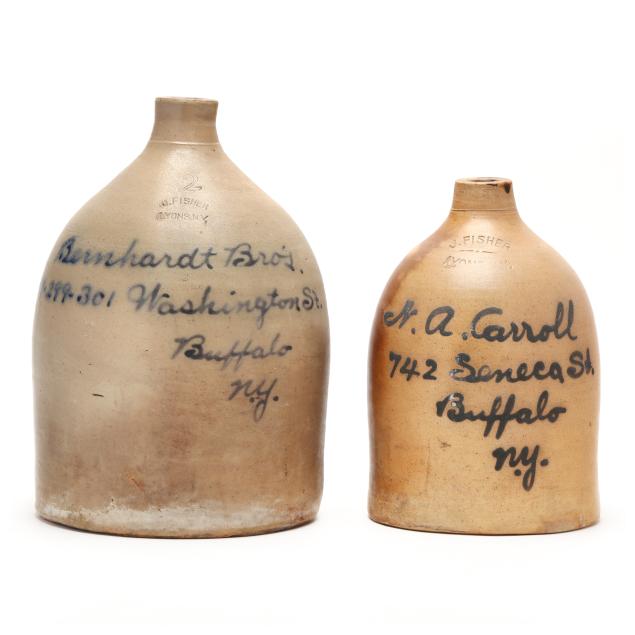 2
J. FISHER
LYONS, N.Y.
Bernhardt Bro's.
299-301 Washington St.
Buffalo
N.y.
J. FISHER
N. A. Carroll
742 Seneca St.
Buffalo
N.y.